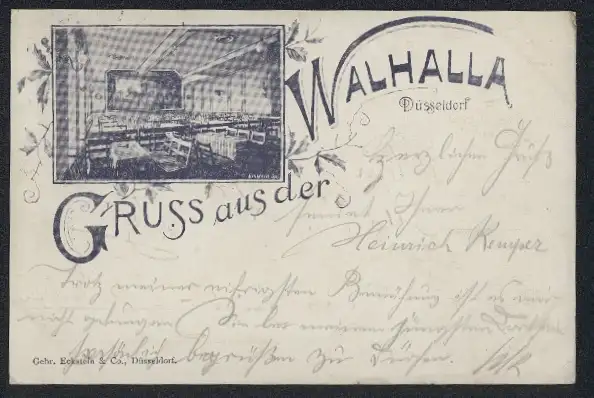 WALHALLA
Düsseldorf
GRUSS aus der
Herzlichen Gruß
sendet Ihnen
Heinrich Kemper
Trotz meiner eifrigsten Bemühung ist es mir
nicht gelungen Sie bei meinem
persönlich begrüßen zu dürfen.
Gebr. Eckstein & Co., Düsseldorf.